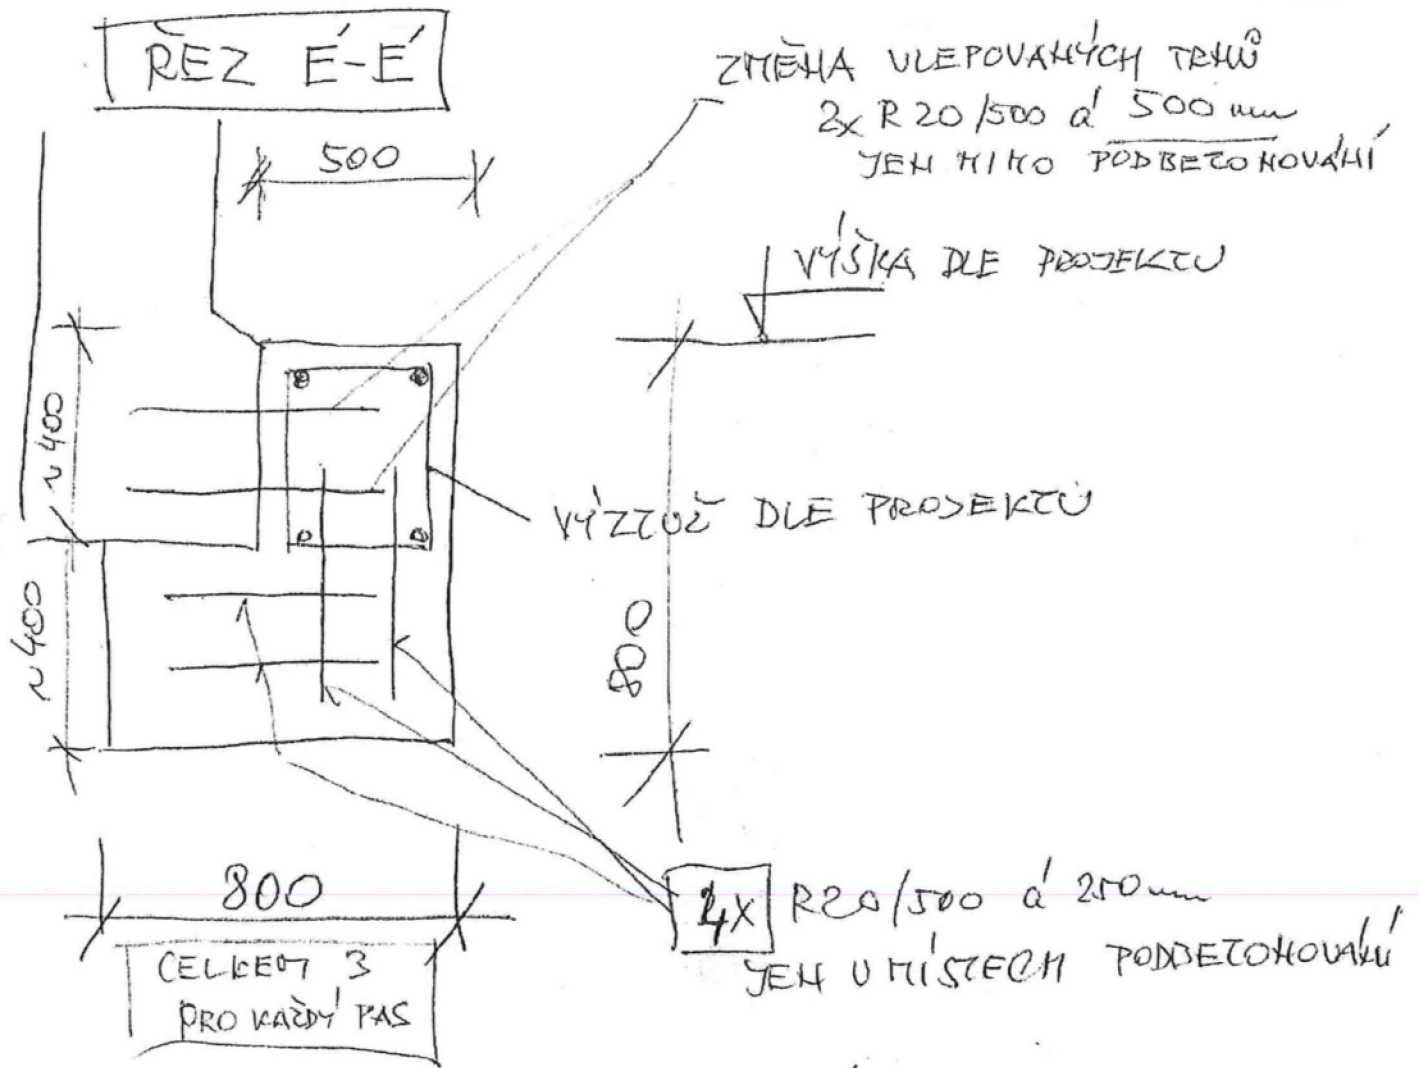 ŘEZ É-É
ZMĚNA VLEPOVANÝCH TRNŮ
2x R20/500 á 500 mm
JEN MIMO PODBETONOVÁNÍ
500
VÝŠKA DLE PROJEKTU
~400
VÝZTUŽ DLE PROJEKTU
~400
800
800
4x R20/500 á 250 mm
JEN V MÍSTECH PODBETONOVÁNÍ
CELKEM 3
PRO KAŽDÝ PAS